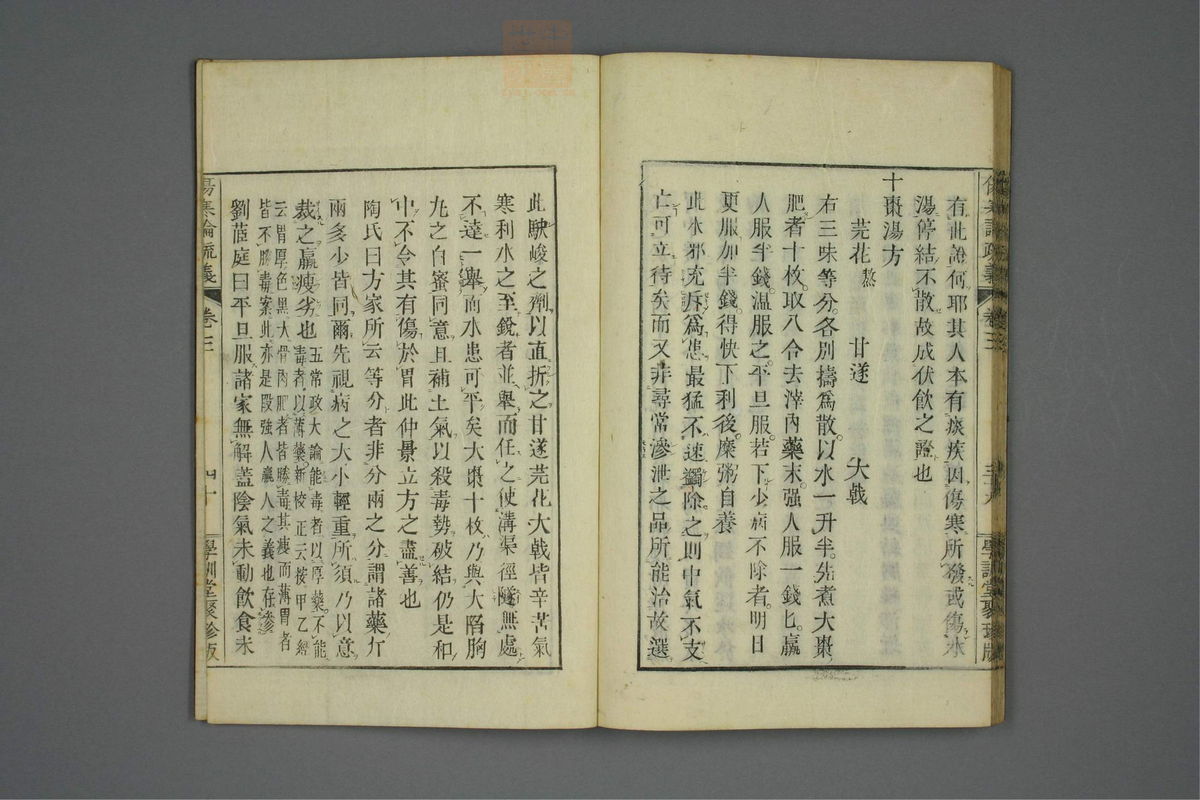 有此證何耶其人本有痰疾因傷寒所發或傷水
湯停結不散故成伏飲之證也
十棗湯方
芫花熬 甘遂 大戟
右三味等分各別擣爲散以水一升半先煮大棗
肥者十枚取八合去滓內藥末强人服一錢匕羸
人服半錢溫服之平旦服若下少病不除者明日
更服加半錢得快下利後糜粥自養
此水邪充斥爲患最猛不速蠲除之則中氣不支
亡可立待矣而又非尋常滲泄之品所能治故選
此駃峻之劑以直折之甘遂芫花大戟皆辛苦氣
寒利水之至銳者並舉而任之使溝渠徑隧無處
不達一舉而水患可平矣大棗十枚乃與大陷胸
丸之白蜜同意且補土氣以殺毒勢破結仍是和
中不令其有傷於胃此仲景立方之盡善也
陶氏曰方家所云等分者非分兩之分謂諸藥斤
兩多少皆同爾先視病之大小輕重所須乃以意
裁之羸瘦劣也五常政大論能毒者以厚藥不能
毒者以薄藥新校正云按甲乙經
云胃厚色黑大骨肉肥者皆勝毒其瘦而薄胃者
皆不勝毒案此亦是殹強人羸人之義也存參
劉茝庭曰平旦服諸家無解蓋陰氣未動飲食未
傷寒論疏義
卷三
四十
學訓堂聚珍版